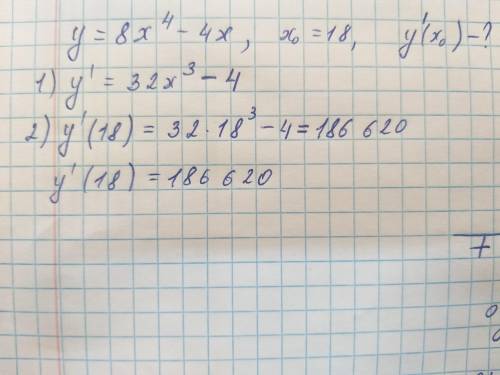 y = 8x⁴ - 4x, x₀ = 18, y'(x₀) - ?
1) y' = 32x³ - 4
2) y'(18) = 32 · 18³ - 4 = 186 620
y'(18) = 186 620
7